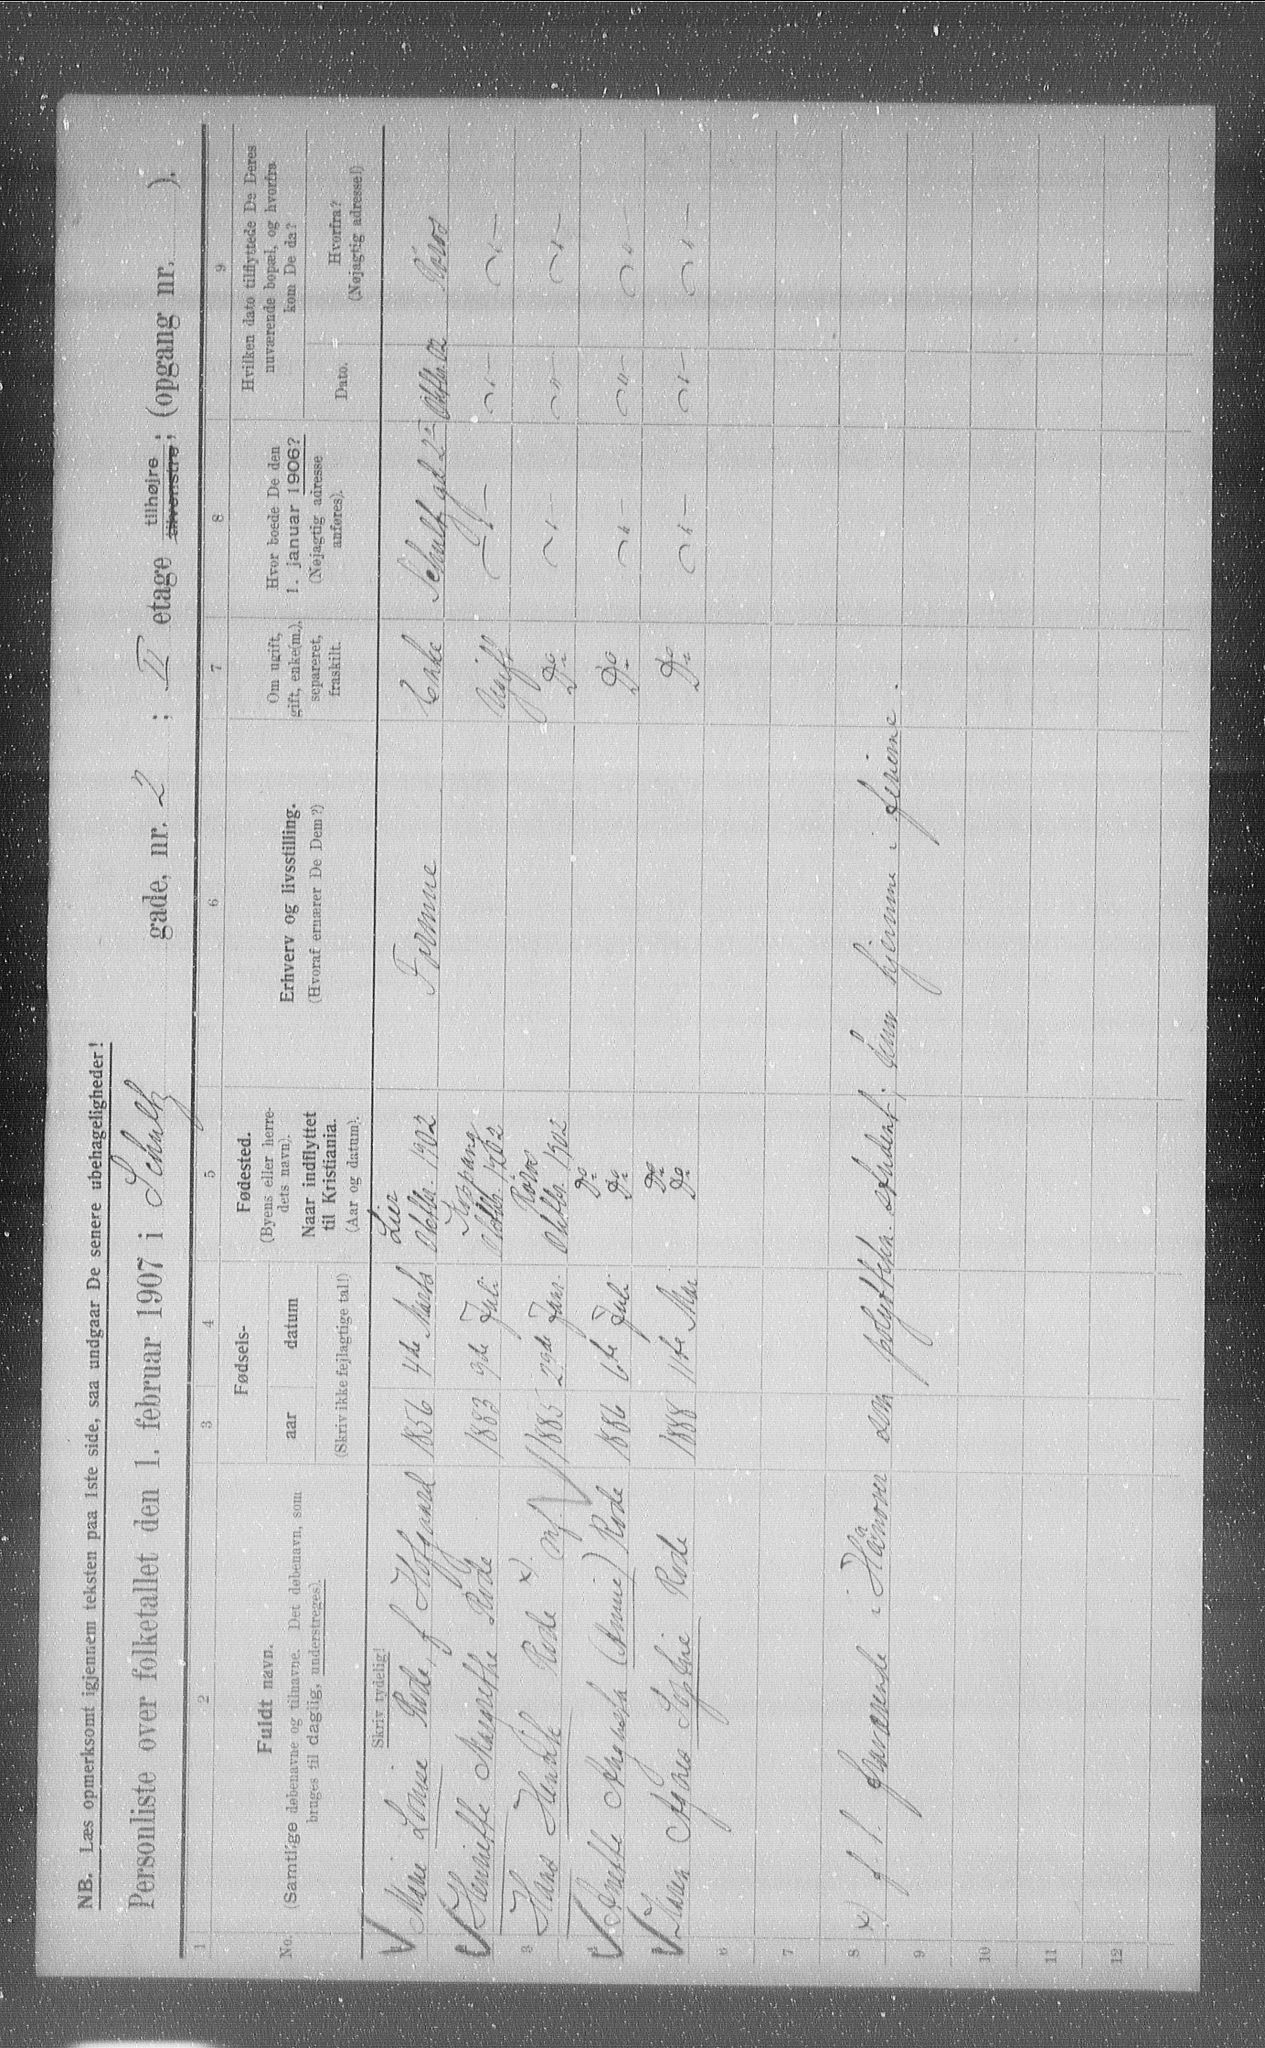 NB. Læs opmerksomt igjennem teksten paa 1ste side, saa undgaar De senere ubehageligheder!
Personliste over folketallet den 1. februar 1907 i Schultz gade, nr. 2 ; II etage tilhøjre ; tilvenstre ; (opgang nr. ).
1 2 3 4 5 6 7 8 9
No.
Fuldt navn.
(Samtlige døbenavne og tilnavne. Det døbenavn, som
bruges til daglig, understreges).
Fødsels-
aar datum
(Skriv ikke fejlagtige tal!)
Fødested.
(Byens eller herre-
dets navn).
Naar indflyttet
til Kristiania.
(Aar og datum).
Erhverv og livsstilling.
(Hvoraf ernærer De Dem?)
Om ugift,
gift, enke(m.),
separeret,
fraskilt.
Hvor boede De den
1. januar 1906?
(Nøjagtig adresse
anføres).
Hvilken dato tilflyttede De Deres
nuværende bopæl, og hvorfra
kom De da?
Dato.
Hvorfra?
(Nøjagtig adresse!)
Skriv tydelig!
Marie Louise Rode, f Hoffgaard 1856 4de Marts Lier Oktbr. 1902 Formue Enke Schultz gd 2 Oktbr. 02 Røros
Henriette Margrethe Rode 1883 9de Juli Koppang Oktbr. 1902 Ugift — " — — " — — " —
3 Hans Henrik Rode x). 1885 29de Jan. Røros Oktbr. 1902 Do — " — — " — — " —
Anette (Annie) Rode 1886 6te Juli Do Do Do — " — — " — — " —
Karen Agnes Sophie Rode 1888 11te Mai Do Do Do — " — — " — — " —
6
7
8 x) f. t. fraværende i Hanover som polytekn. student; kun hjemme i ferierne.
9
10
11
12